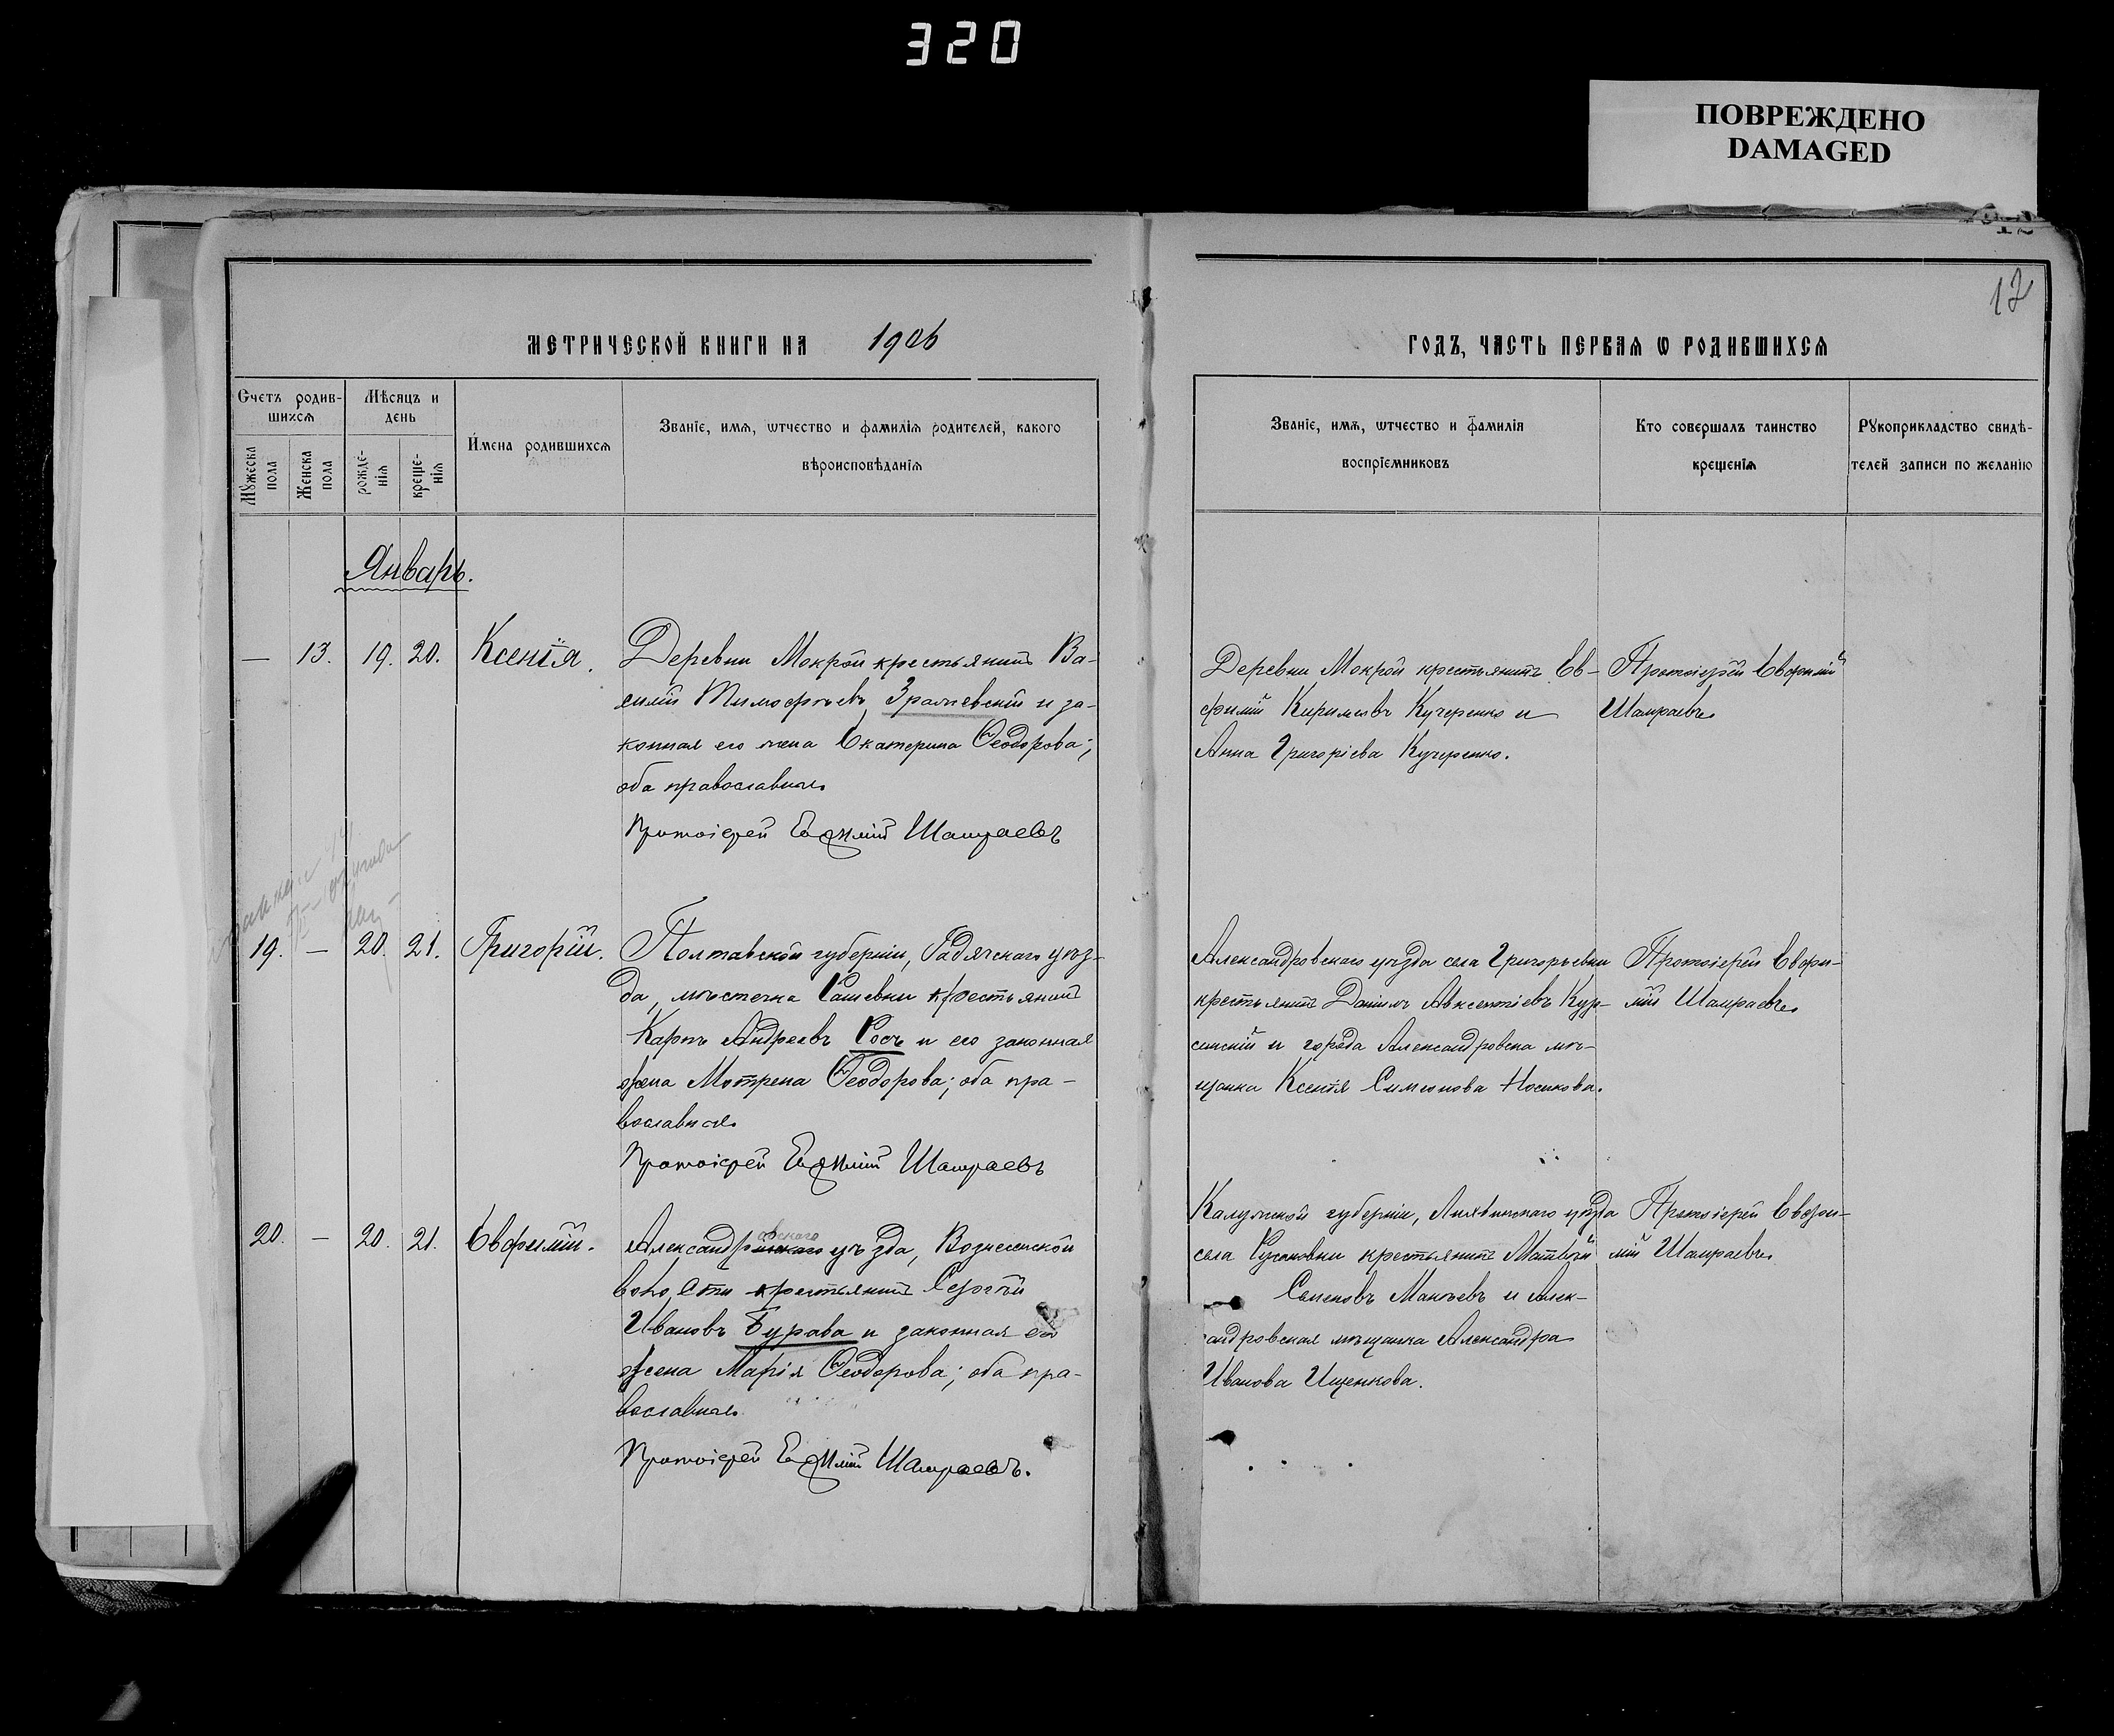 320
ПОВРЕЖДЕНО
DAMAGED
12
МЕТРИЧЕСКОЙ КНИГИ НА 1906
ГОДЪ, ЧАСТЬ ПЕРВАЯ Ѡ РОДИВШИХСЯ
Счетъ родив-
шихсѧ
Мꙋжеска пола
Женска пола
Мѣсяцъ и
день
рожде-
нїѧ
креще-
нїѧ
Имена родившихсѧ
Званїе, имѧ, ѡтчество и фамилїѧ родителей, какого
вѣроисповѣданїѧ
Званїе, имѧ, ѡтчество и фамилїѧ
воспрїемниковъ
Кто совершалъ таинство
крещенїѧ
Рꙋкоприкладство свидѣ-
телей записи по желанїю
Январь.
— 13. 19. 20. Ксенія.
Деревни Мокрой крестьянинъ Ва-
силій Тимофѣевъ Зрачевскій и за-
конная его жена Екатерина Ѳеодорова;
оба православные.
Протоіерей Евѳимій Шамраевъ
Деревни Мокрой крестьянинъ Ев-
фимій Кириловъ Кучеренко и
Анна Григоріева Кучеренко.
Протоіерей Евфимій
Шамраевъ.
19. — 20. 21. Григорій.
Полтавской губерніи, Гадячскаго уѣз-
да, мѣстечка Рашевки крестьянинъ
Карпъ Андреевъ Росъ и его законная
жена Мотрена Ѳеодорова; оба пра-
вославные.
Протоіерей Евѳимій Шамраевъ
Александровскаго уѣзда села Григорьевки
крестьянинъ Даніилъ Авксентіевъ Кур-
синскій и города Александровска мѣ-
щанка Ксенія Симеонова Носикова.
Протоіерей Евфи-
мій Шамраевъ.
20. — 20. 21. Евфимій.
овскаго
Александр уѣзда, Вознесенской
волости крестьянинъ Сергѣй
Ивановъ Бурава и законная его
жена Марія Ѳеодорова; оба пра-
вославные.
Протоіерей Евѳимій Шамраевъ.
Калужской губерніи, Лихвинскаго уѣзда
села крестьянинъ Матвѣй
Семеновъ Макѣевъ и Алек-
андровская мѣщанка Александра
Иванова Ищенкова.
Протоіерей Евфи-
мій Шамраевъ.